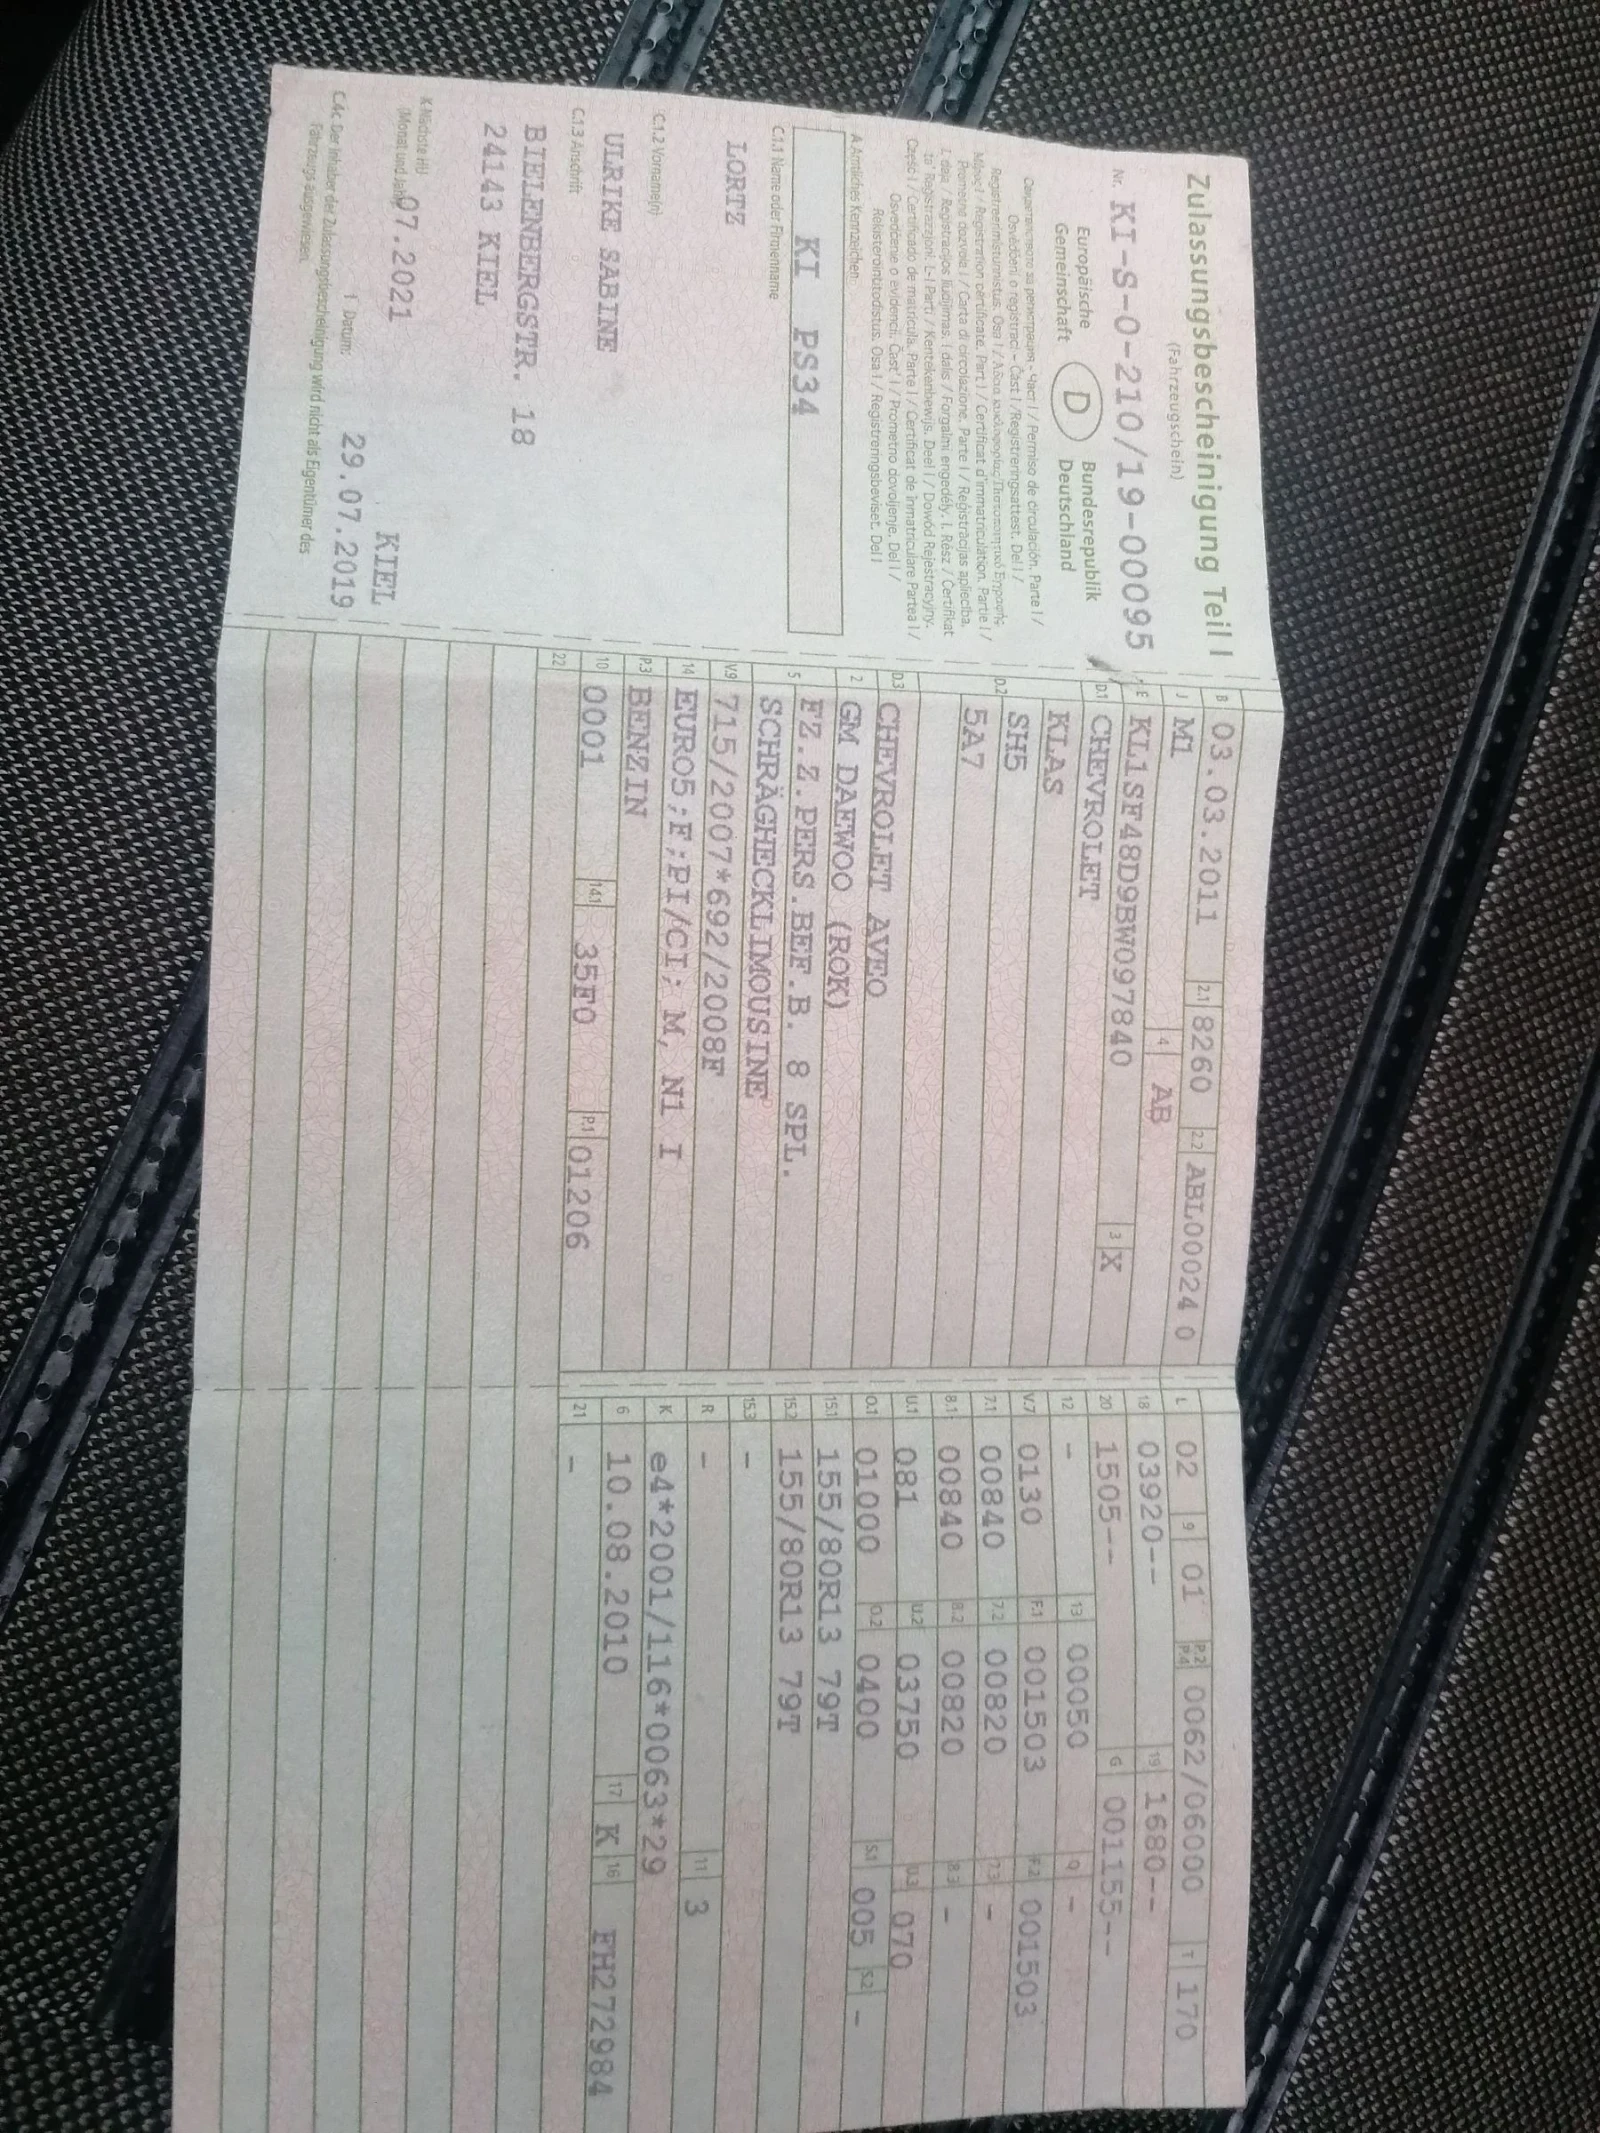 Zulassungsbescheinigung Teil I
(Fahrzeugschein)
Nr. KI-S-0-210/19-00095
Europäische Gemeinschaft
D
Bundesrepublik Deutschland
Свидетелство за регистрация - Част I / Permiso de circulación. Parte I /
Osvědčení o registraci – Část I / Registreringsattest. Del I /
Registreerimistunnistus. Osa I /
/ Registration certificate. Part I / Certificat d'immatriculation. Partie I /
Prometna dozvola I / Carta di circolazione. Parte I / Reģistrācijas apliecība.
I. daļa / Registracijos liudijimas. I dalis / Forgalmi engedély. I. Rész / Ċertifikat
ta' Reġistrazzjoni. L-I Parti / Kentekenbewijs. Deel I / Dowód Rejestracyjny.
Część I / Certificado de matrícula. Parte I / Certificat de înmatriculare Partea I /
Osvedčenie o evidencii. Časť I / Prometno dovoljenje. Del I /
Rekisteröintitodistus. Osa I / Registreringsbeviset. Del I
A Amtliches Kennzeichen
KI PS34
C.1.1 Name oder Firmenname
LORTZ
C.1.2 Vorname(n)
ULRIKE SABINE
C.1.3 Anschrift
BIELENBERGSTR. 18
24143 KIEL
X Nächste HU
(Monat und Jahr) 07.2021
KIEL
I Datum: 29.07.2019
C.4c Der Inhaber der Zulassungsbescheinigung wird nicht als Eigentümer des
Fahrzeugs ausgewiesen.
B 03.03.2011 2.1 8260 2.2 ABL00024 0
J M1 4 AB
E KL1SF48D9BW097840 3 X
D.1 CHEVROLET
KLAS
D.2 SH5
5A7
D.3 CHEVROLET AVEO
2 GM DAEWOO (ROK)
5 FZ.Z.PERS.BEF.B. 8 SPL.
SCHRÄGHECKLIMOUSINE
V.9 715/2007*692/2008F
14 EURO5;F;PI/CI; M, N1 I
P.3 BENZIN
10 0001 14.1 35F0 P.1 01206
22
L 02 9 01 P.2 P.4 0062/06000 T 170
18 03920-- 19 1680--
20 1505-- G 001155--
12 - 13 00050 Q -
V.7 0130 F.1 001503 F.2 001503
7.1 00840 7.2 00820 7.3 -
8.1 00840 8.2 00820 8.3 -
U.1 081 U.2 03750 U.3 070
O.1 01000 O.2 0400 S.1 005 S.2 -
15.1 155/80R13 79T
15.2 155/80R13 79T
15.3 -
R - 11 3
K e4*2001/116*0063*29
6 10.08.2010 17 K 16 FH272984
21 -